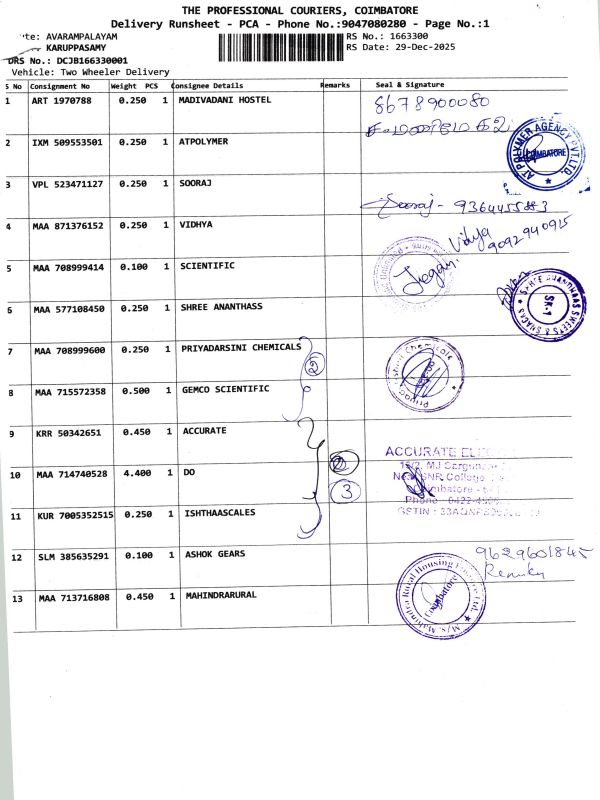 THE PROFESSIONAL COURIERS, COIMBATORE
Delivery Runsheet - PCA - Phone No.:9047080280 - Page No.:1
te: AVARAMPALAYAM RS No.: 1663300
KARUPPASAMY RS Date: 29-Dec-2025
DRS No.: DCJB166330001
Vehicle: Two Wheeler Delivery
S No Consignment No Weight PCS Consignee Details Remarks Seal & Signature
1 ART 1970788 0.250 1 MADIVADANI HOSTEL 8678900080
2 IXM 509553501 0.250 1 ATPOLYMER AT POLYMER AGENCY PVT LTD COIMBATORE
3 VPL 523471127 0.250 1 SOORAJ Sooraj - 9364455883
4 MAA 871376152 0.250 1 VIDHYA Vidya 9092940915
5 MAA 708999414 0.100 1 SCIENTIFIC Jegan
6 MAA 577108450 0.250 1 SHREE ANANTHASS SHREE ANANDHAAS SWEETS & SNACKS SK-1
7 MAA 708999600 0.250 1 PRIYADARSINI CHEMICALS 2
8 MAA 715572358 0.500 1 GEMCO SCIENTIFIC
9 KRR 50342651 0.450 1 ACCURATE ACCURATE
10 MAA 714740528 4.400 1 DO SNR College Coimbatore
3 Phone
11 KUR 7005352515 0.250 1 ISHTHAASCALES GSTIN :
12 SLM 385635291 0.100 1 ASHOK GEARS 9629601845
Renuka
13 MAA 713716808 0.450 1 MAHINDRARURAL M/s. Mahindra Rural Housing Finance Ltd. Coimbatore